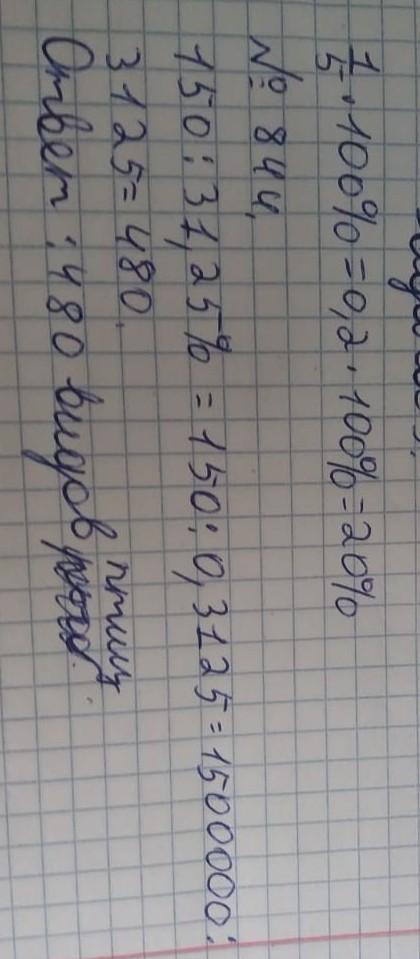 1/5 · 100% = 0,2 · 100% = 20%
№ 844.
150 : 31,25% = 150 : 0,3125 = 1500000 :
3125 = 480.
птиц
Ответ : 480 видов